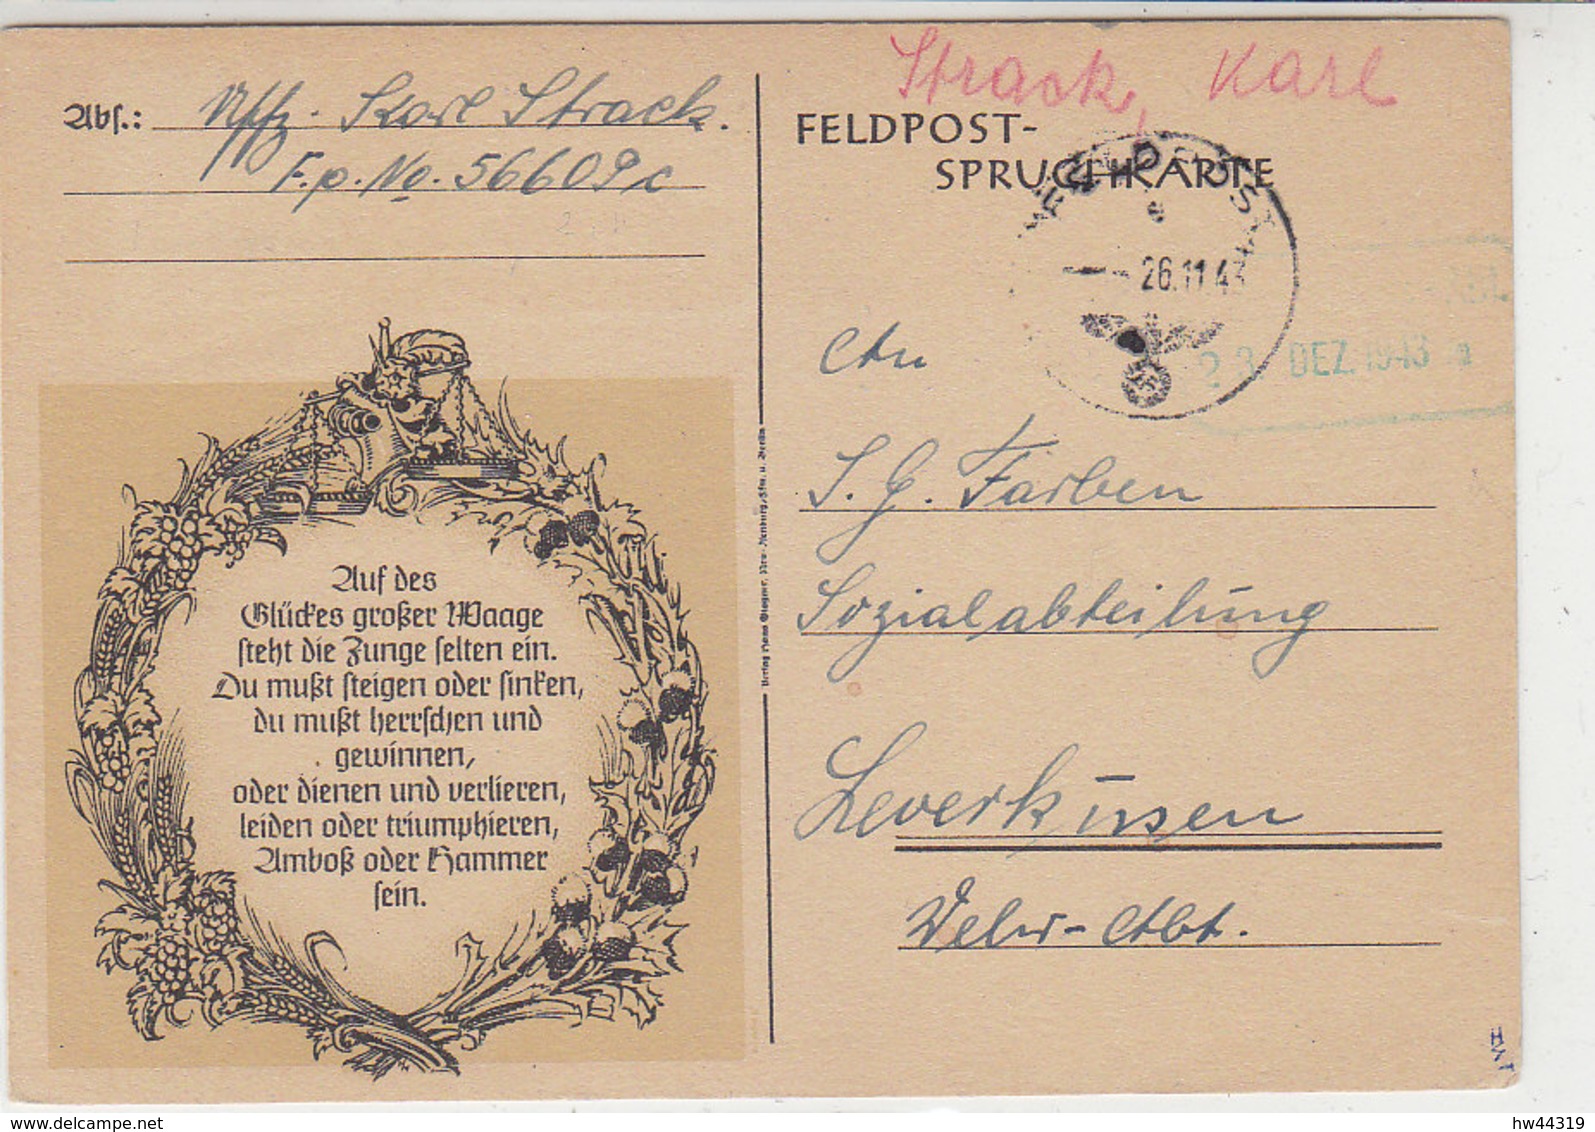 Strack, Karl
Abs.: Uffz. Karl Strack.
F.p.No. 56609c
FELDPOST-
SPRUCHKARTE
FELDPOST
e
26.11.43
DEZ. 1943
Auf des
Glückes großer Waage
steht die Zunge selten ein.
Du mußt steigen oder sinken,
du mußt herrschen und
gewinnen,
oder dienen und verlieren,
leiden oder triumphieren,
Amboß oder Hammer
sein.
An
I. G. Farben
Sozialabteilung
Leverkusen
Wehr-Abt.
hw44319
delcampe.net